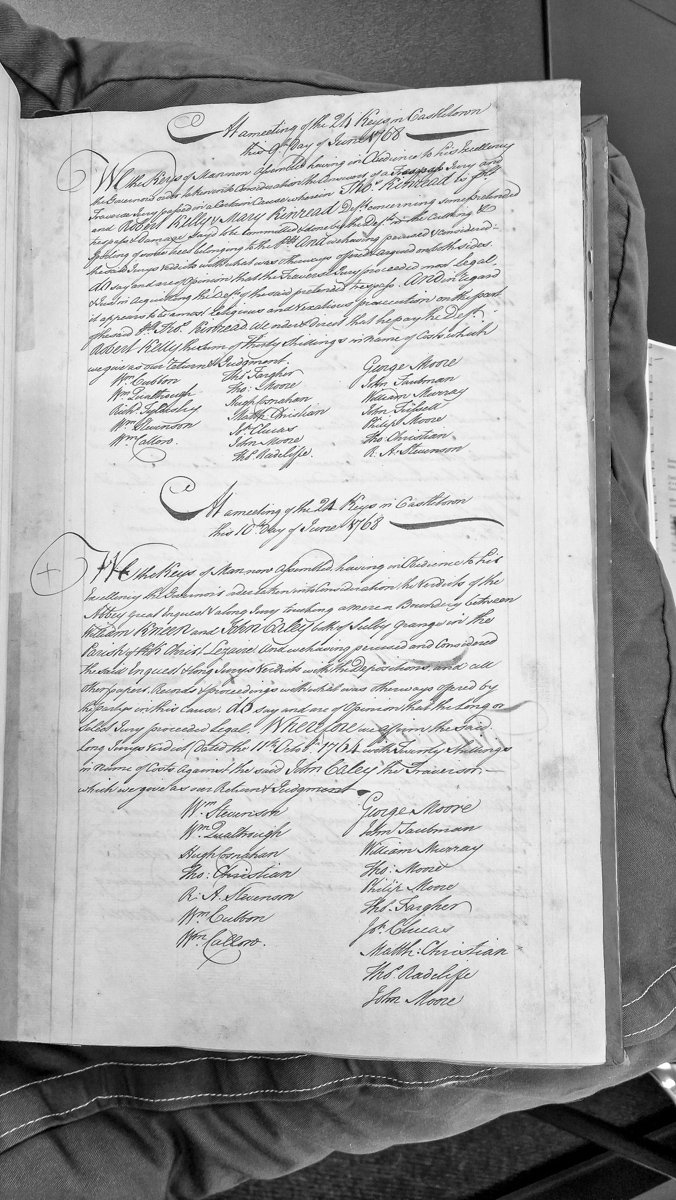 At a meeting of the 24 Keys in Castletown
this 9th Day of June 1768
We the Keys of Mann now assembled having in Obedience to his Excellency
the Governor's order taken into Consideration the Traverse of a Trespass Jury and
Traverse Jury passed in a Certain Cause wherein Thos. Kinread is pltf.
and Robert Kelly & Mary Kinread Defts. concerning some pretended
trespass & Damage said to be Committed & done by the Defts. in the Cutting &
of some trees belonging to the pltf. And we having perused & considered
the said Jurys Verdicts with what was otherways offered & argued on both sides
do say and are of Opinion that the Traverse Jury proceeded most legal
& Just in acquitting the Defts. of the said pretended trespass. And in regard
it appears to be a most litigious and Vexatious prosecution on the part
of the said pltf. Thos. Kinread, We order & Direct that he pay the Deft.
Robert Kelly the Sum of Thirty Shillings in name of Costs, which
we give as our Return & Judgment.
Wm. Cubbon Thos. Fargher George Moore
Wm. Qualtrough Tho: Moore John Taubman
Richd. Tyldesley Hugh Cosnahan William Murray
Wm. Stevenson Matth. Christian John Frissell
Wm. Callow. Jos. Clucas Philip Moore
John Moore Tho. Christian
Thos. Radcliffe. R. A. Stevenson
At a meeting of the 24 Keys in Castletown
this 10th Day of June 1768
We the Keys of Man now assembled, having in Obedience to his
Excellency the Governor's order taken into Consideration the Verdicts of the
Abbey Great Enquest & along Jury touching a mere or Boundery between
William Kneen and John Caley both of Sulby Grange in the
Parish of Kk. Christ Lezaire. And we having perused and Considered
the said Enquest & long Jurys Verdicts with the Depositions, and all
other papers, Records & proceedings with what was otherways offered by
the partys in this Cause. do say and are of Opinion that the Long or
Select Jury proceeded legal. Wherefore we affirm the said
Long Jurys Verdict Dated the 11th Octobr. 1764 with Twenty Shillings
in name of Costs against the said John Caley the Traversor,
which we give as our Return & Judgment
Wm. Stevenson George Moore
Wm. Qualtrough John Taubman
Hugh Cosnahan William Murray
Tho: Christian Tho: Moore
R: A: Stevenson Philip Moore
Wm. Cubbon Thos. Fargher
Wm. Callow. Jos. Clucas
Matth: Christian
Thos. Radcliffe
John Moore